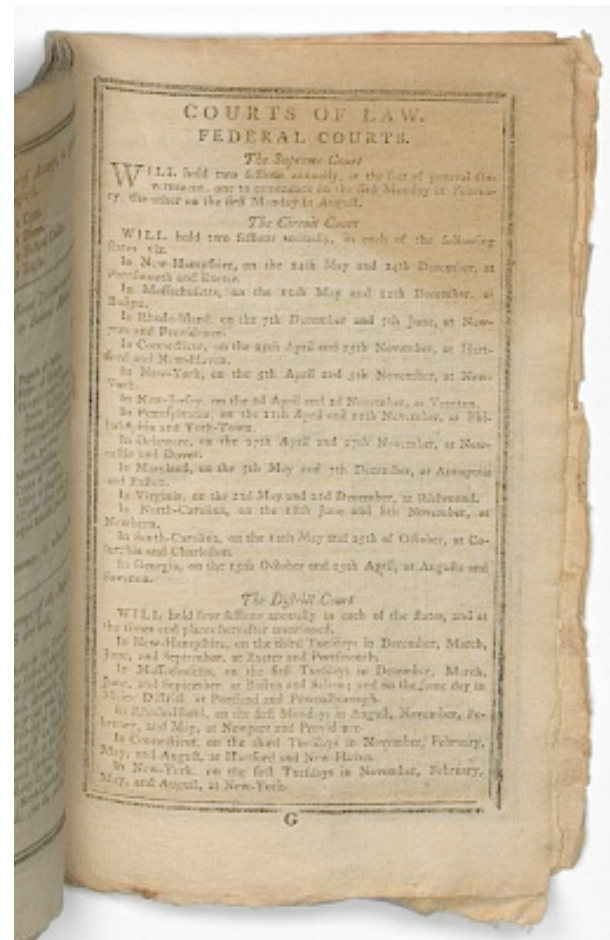 COURTS OF LAW.
FEDERAL COURTS.
The Supreme Court
WILL hold two sessions annually, at the seat of general Go-
vernment, one to commence on the first Monday in Februa-
ry, the other on the first Monday in August.
The Circuit Court
WILL hold two sessions annually, in each of the following
states viz.
In New-Hampshire, on the 24th May and 24th December, at
Portsmouth and Exeter.
In Massachusetts, on the 12th May and 12th December, at
Boston.
In Rhode-Island, on the 7th December and 7th June, at New-
port and Providence.
In Connecticut, on the 25th April and 25th November, at Hart-
ford and New-Haven.
In New-York, on the 5th April and 5th November, at New-
York.
In New-Jersey, on the 2d April and 2d November, at Trenton.
In Pennsylvania, on the 11th April and 11th November, at Phi-
ladelphia and York-Town.
In Delaware, on the 27th April and 27th November, at New-
castle and Dover.
In Maryland, on the 7th May and 7th December, at Annapolis
and Easton.
In Virginia, on the 22d May and 22d December, at Richmond.
In North-Carolina, on the June and November, at
Newbern.
In South-Carolina, on the 12th May and 25th of October, at Co-
lumbia and Charleston.
In Georgia, on the 15th October and 25th April, at Augusta and
Savanna.
The District Court
WILL hold four sessions annually in each of the states, and at
the times and places hereafter mentioned.
In New-Hampshire, on the third Tuesdays in December, March,
June, and September, at Exeter and Portsmouth.
In Massachusetts, on the first Tuesdays in December, March,
June, and September, at Boston and Salem; and on the same day in
Maine District, at Portland and Pownalborough.
In Rhode-Island, on the first Mondays in August, November, Fe-
bruary, and May, at Newport and Providence.
In Connecticut, on the third Tuesdays in November, February,
May, and August, at Hartford and New-Haven.
In New-York, on the first Tuesdays in November, February,
May, and August, at New-York.
G